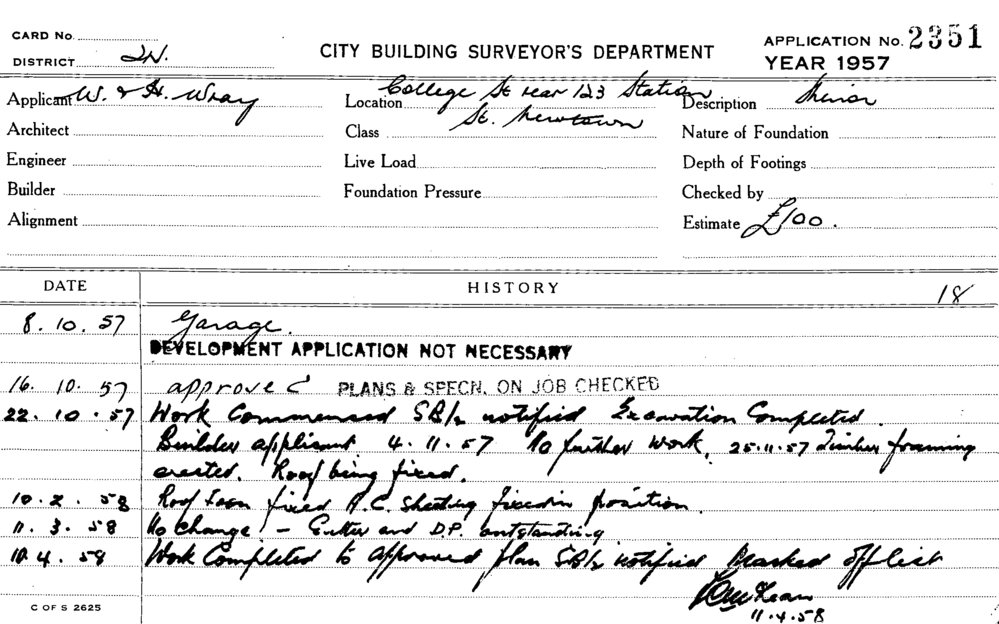 CARD No.
DISTRICT
CITY BUILDING SURVEYOR'S DEPARTMENT
APPLICATION No. 2351
YEAR 1957
Applicant W. & H. Wray
Location College St rear 123 Station
St. Newtown
Description Minor
Architect
Class
Nature of Foundation
Engineer
Live Load
Depth of Footings
Builder
Foundation Pressure
Checked by
Alignment
Estimate £100.
DATE
HISTORY
18
8. 10. 57 Garage.
DEVELOPMENT APPLICATION NOT NECESSARY
16. 10. 57 approved PLANS & SPECN. ON JOB CHECKED
22. 10. 57 Work Commenced notified Excavation Completed.
Builder applicant 4. 11. 57 No further work. 25.11.57 Timber framing
erected. Roof being fixed.
10. 2. 58 Roof Iron fixed A.C. Sheeting fixed in position.
11. 3. 58 No change - Gutter and D.P. outstanding
10. 4. 58 Work Completed to approved plan notified Marked off list
11.4.58
C OF S 2625